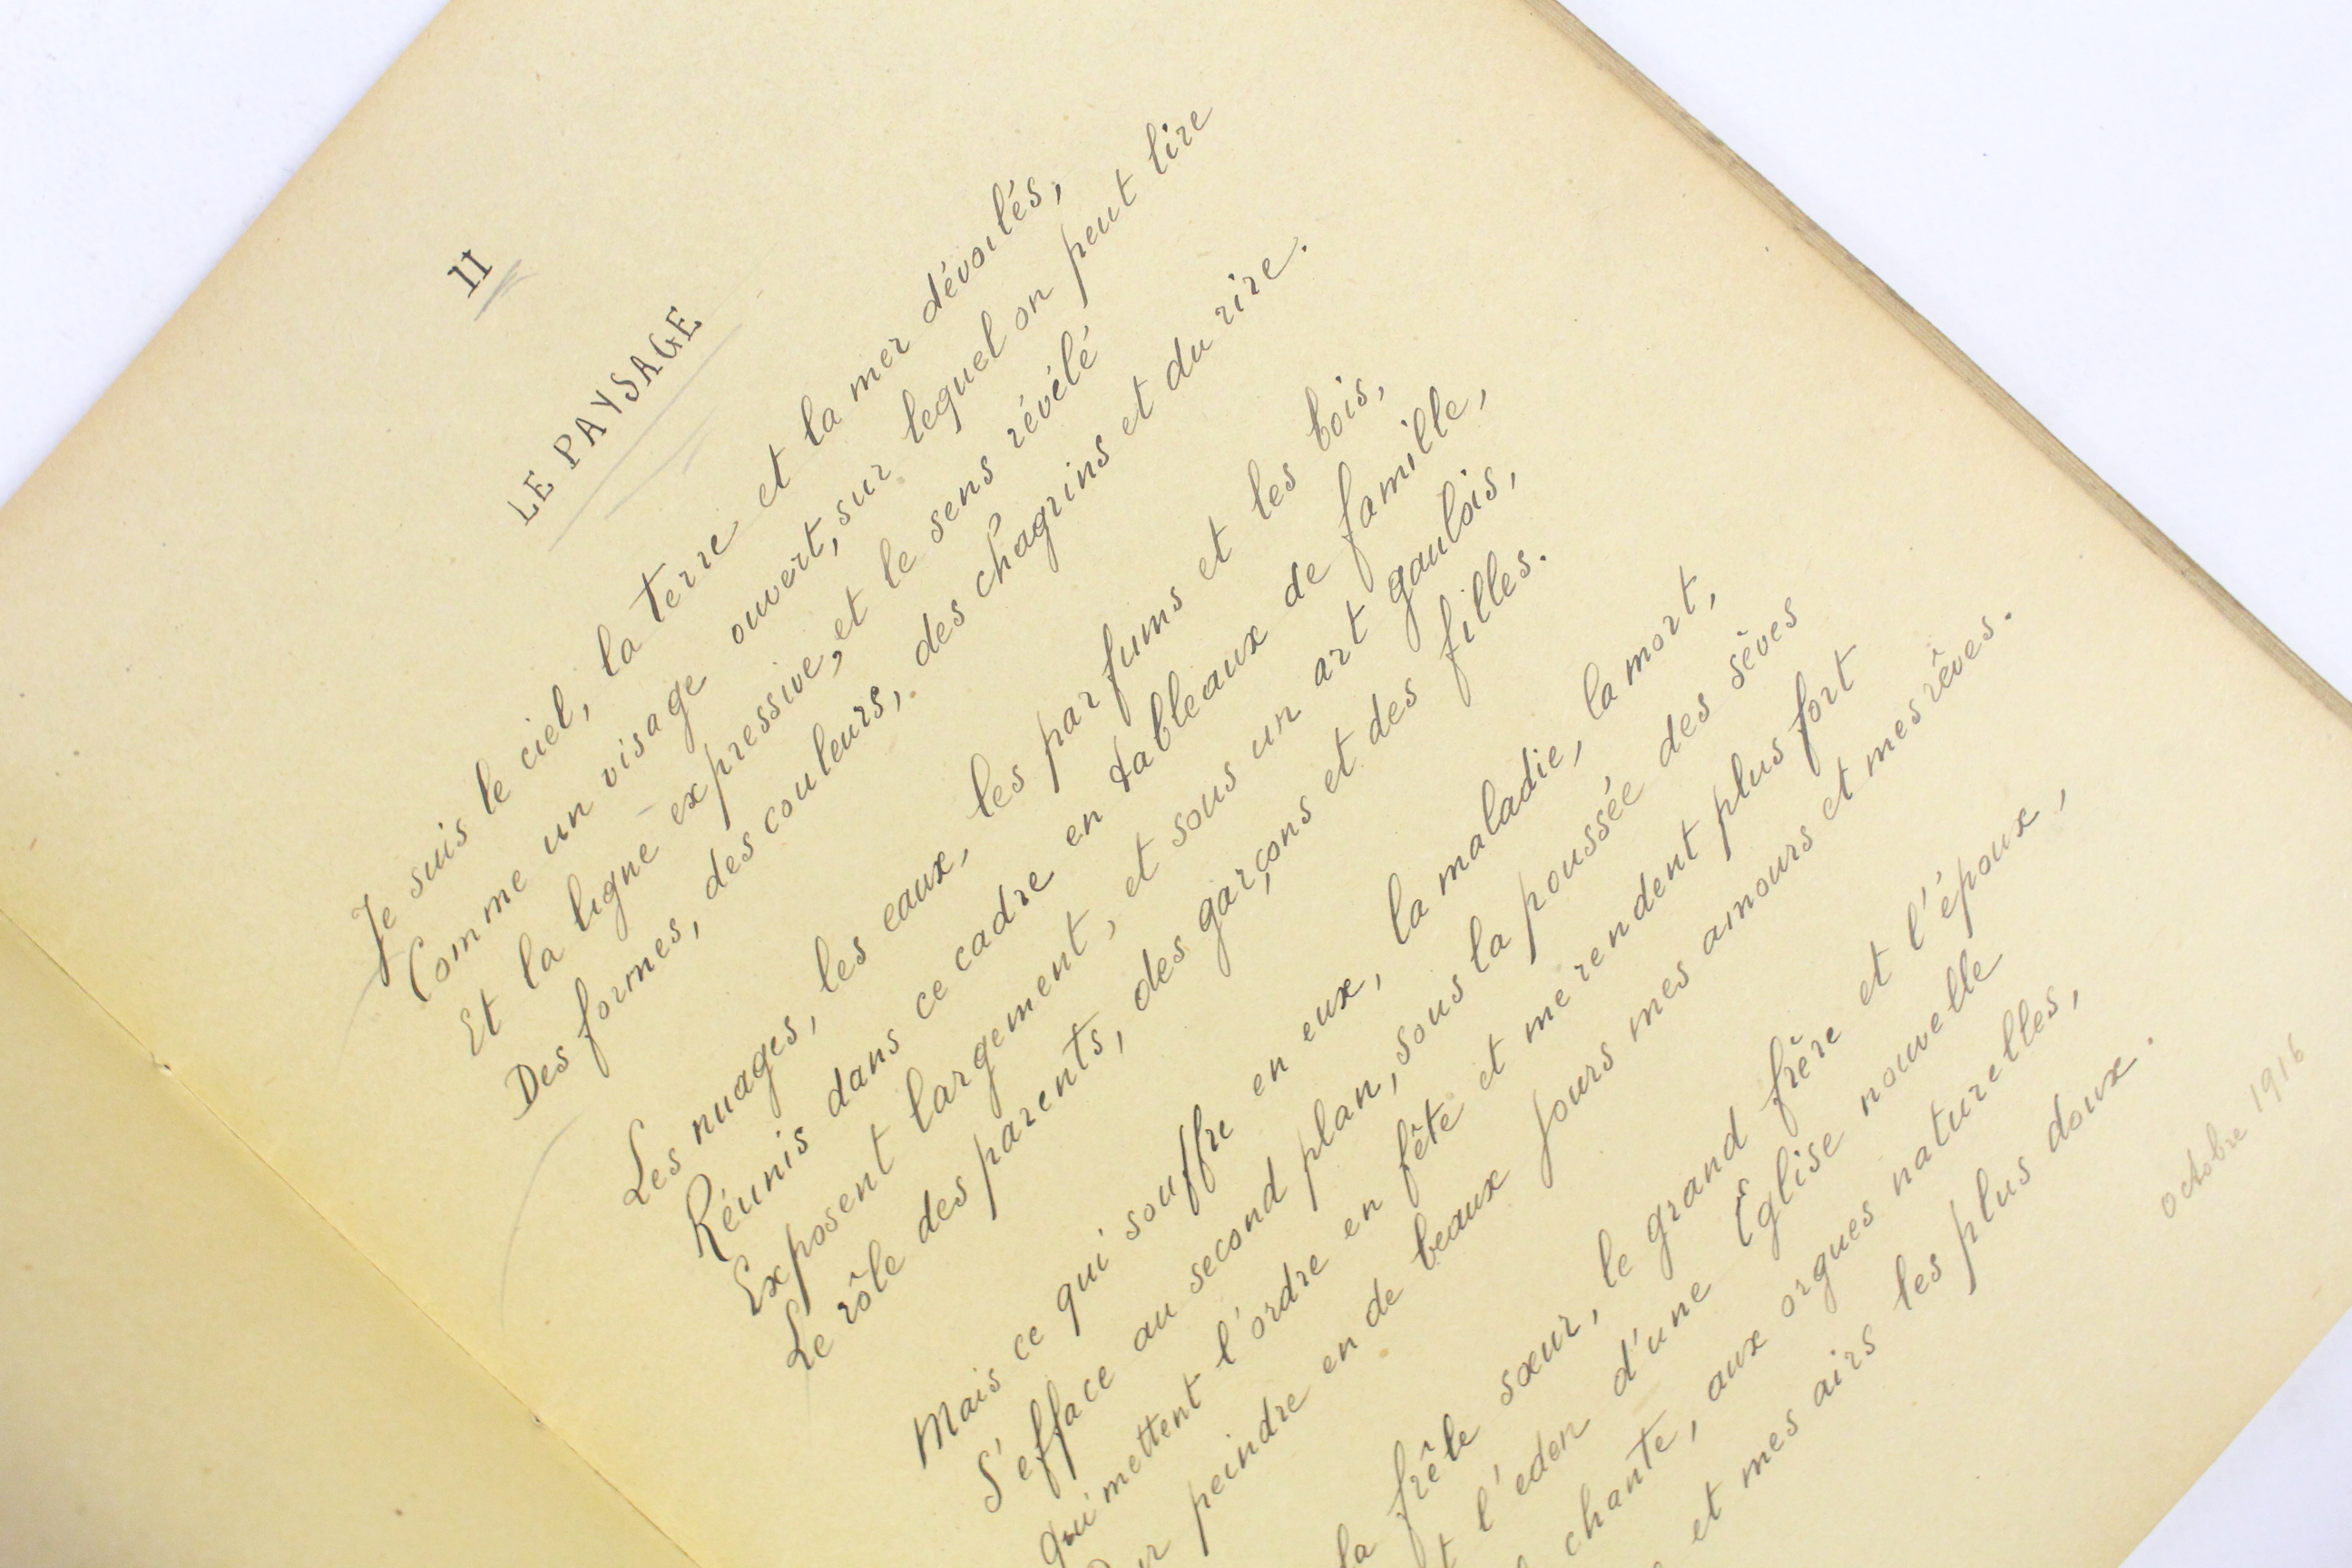 II
LE PAYSAGE
Je suis le ciel, la terre et la mer dévoilés,
Comme un visage ouvert, sur lequel on peut lire
Et la ligne expressive, et le sens révélé
Des formes, des couleurs, des chagrins et du rire.
Les nuages, les eaux, les parfums et les bois,
Réunis dans ce cadre en tableaux de famille,
Exposent largement, et sous un art gaulois,
Le rôle des parents, des garçons et des filles.
Mais ce qui souffre en eux, la maladie, la mort,
S'efface au second plan, sous la poussée des sèves
Qui mettent l'ordre en fête et me rendent plus fort
peindre en de beaux jours mes amours et mes rêves.
la frêle sœur, le grand frère et l'époux,
l'eden d'une Église nouvelle
chante, aux orgues naturelles,
et mes airs les plus doux.
octobre 1916